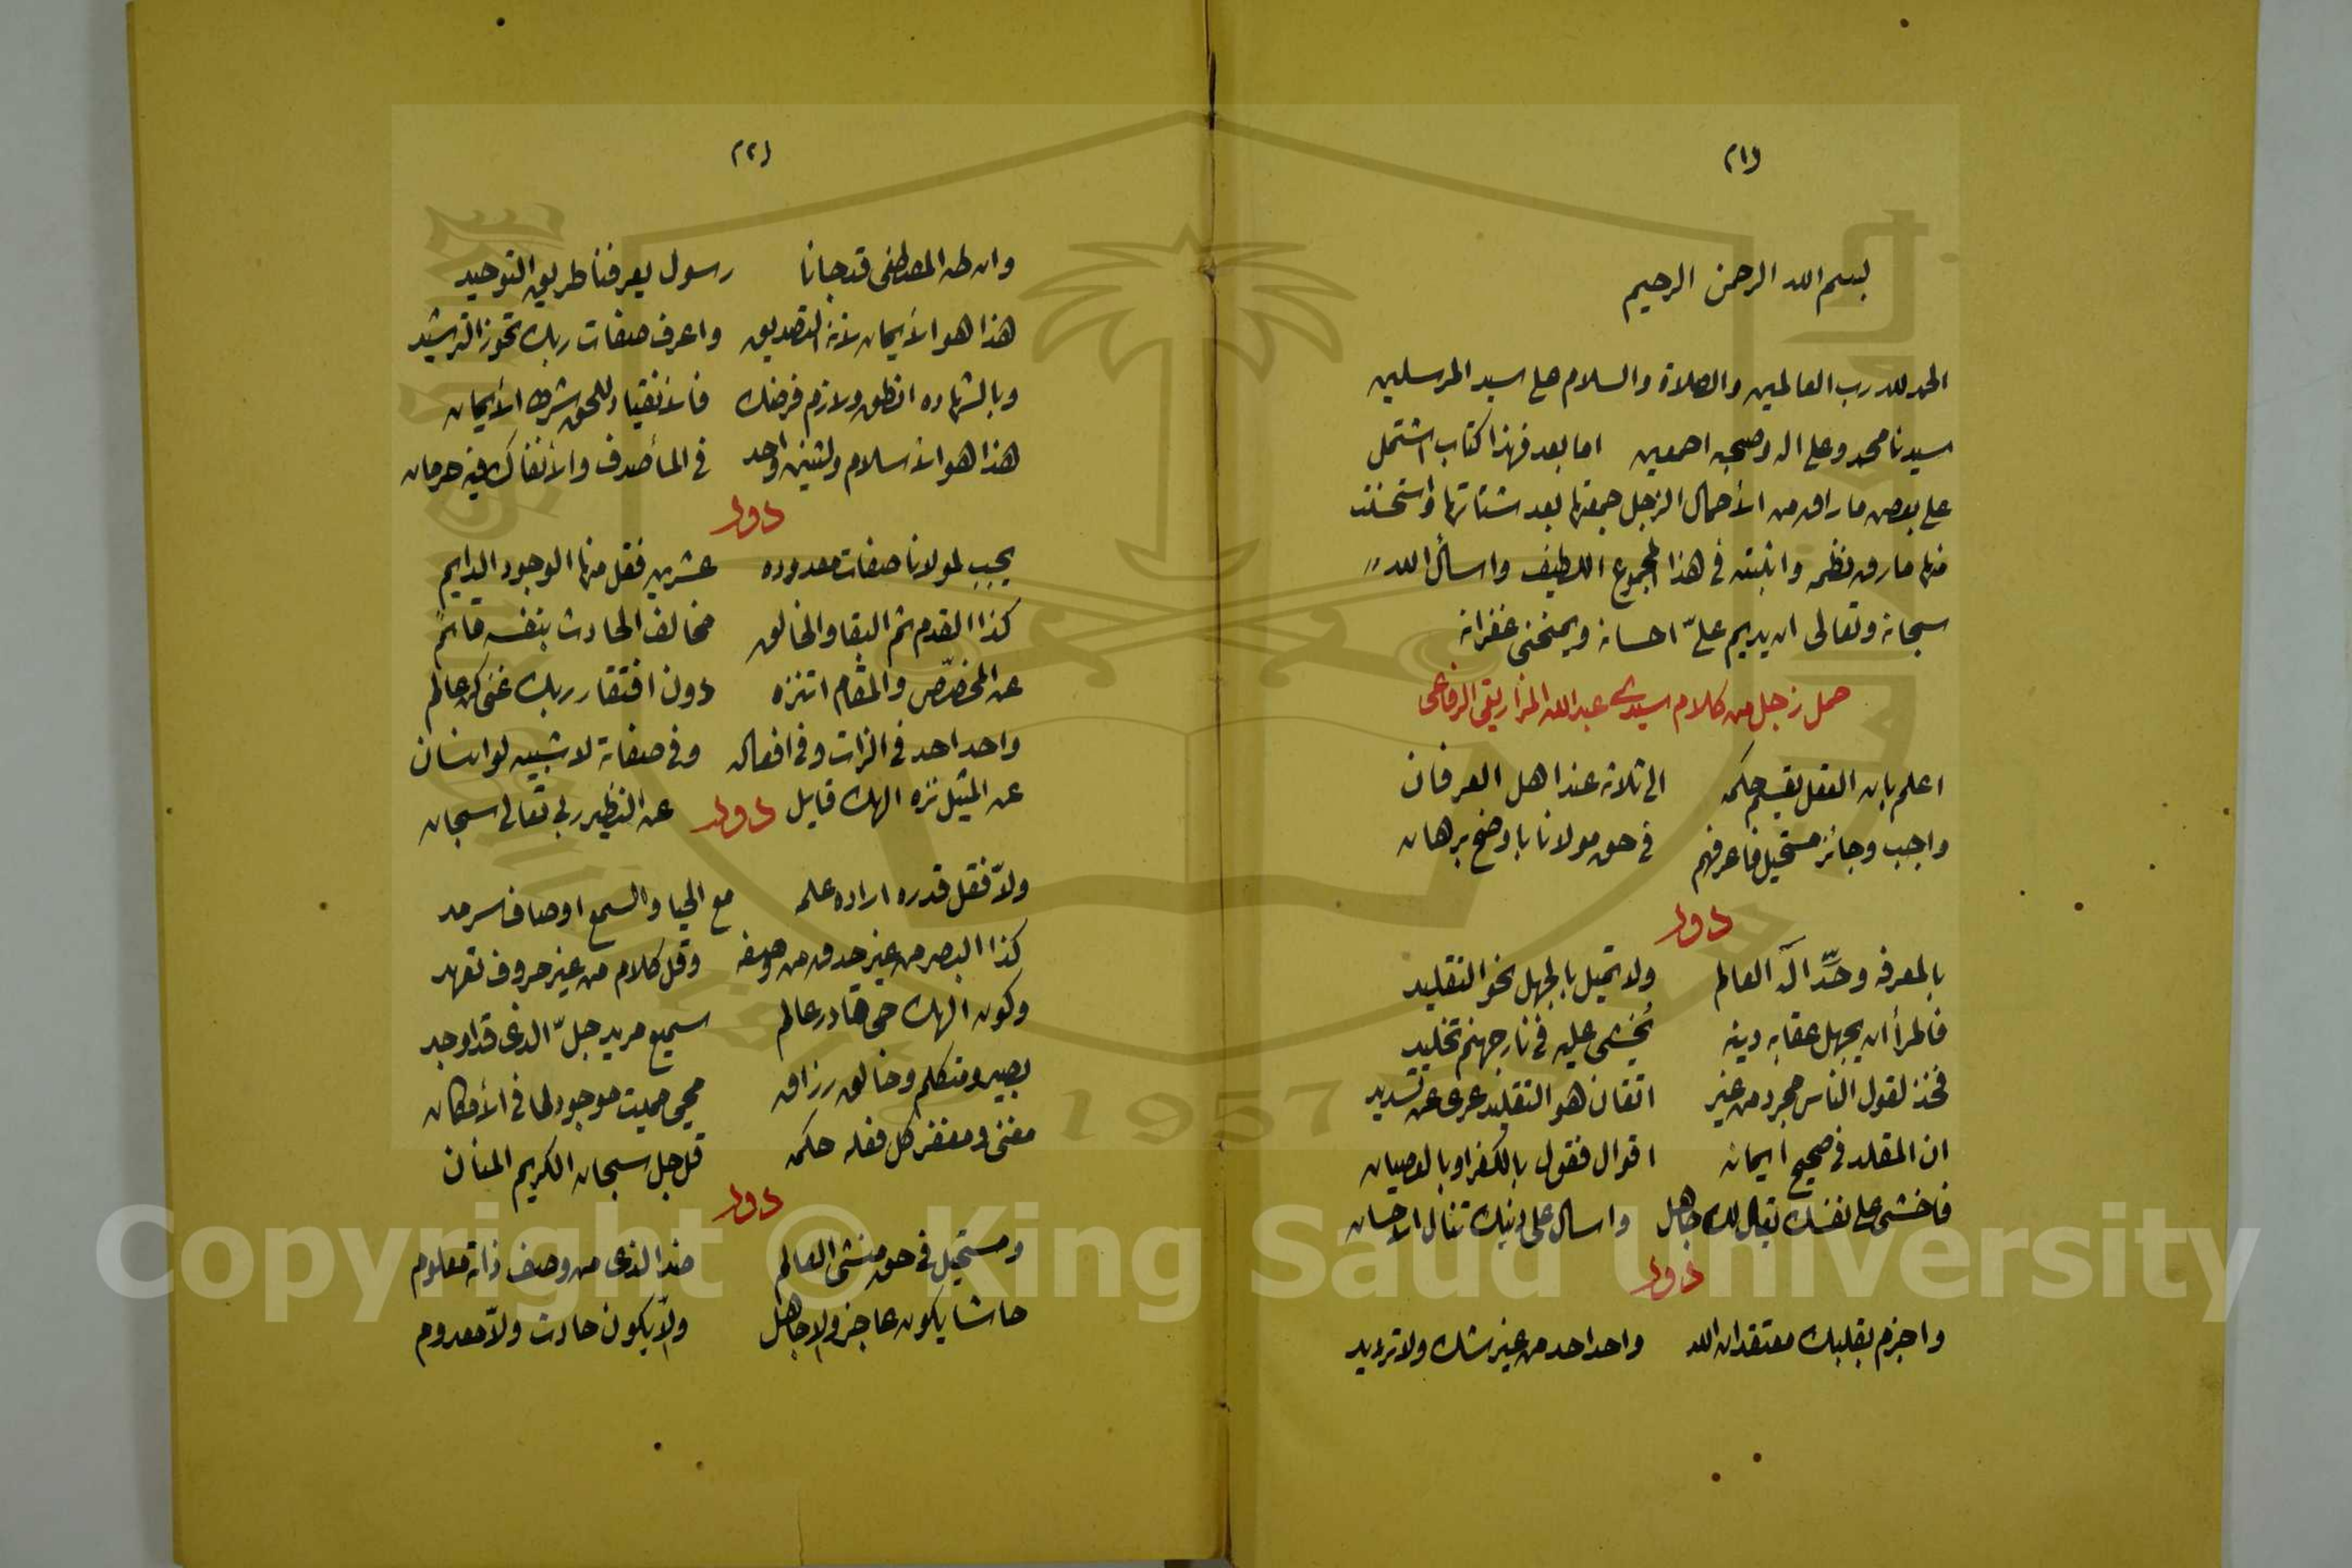 (١)
بسم الله الرحمن الرحيم
الحمد لله رب العالمين والصلاة والسلام على سيد المرسلين
سيدنا محمد وعلى اله وصحبه اجمعين اما بعد فهذا كتاب اشتمل
على بعض ما راق من الأحمال الزجل جمعتها بعد شتاتها واستحسنت
منها ما رق نظمه واثبته في هذا المجموع اللطيف واسأل الله
سبحانه وتعالى ان يديم عليّ احسانه ويمنحنى غفرانه
حمل زجل من كلام سيدى عبدالله المزاريقى الرفاعى
اعلم بان العقل يقسم حكمه الى ثلاثه عند اهل العرفان
واجب وجائز مستحيل فاعرفهم في حق مولانا باوضح برهان
دور
بالمعرفه وحّد اله العالم ولا تميل بالجهل نحو التقليد
فالمرأ ان يجهل عقايد دينه يُخشى عليه في نار جهنم تخليد
فخذ لقول الناس مجرد من غير اتقان هو التقليد عرى عن تسديد
ان المقلد في صحيح ايمانه اقوال فقول بالكفر او بالعصيان
فاخشى على نفسك يقال لك جاهل واسال على دينك تنال الاحسان
دور
واجزم بقلبك معتقد ان الله واحد احد من غير شك ولا ترديد
(٢)
وان طه المصطفى قد جانا رسول يعرفنا طريق التوحيد
هذا هو الأيمان لأنه التصديق واعرف صفات ربك تحوز الترشيد
وبالشهاده انطق ولازم فرضك فالأنقياد للحق شرط الأيمان
هذا هو الأسلام ولتنين واحد في المأصدق والأنفاك فيه حرمان
دور
يجب لمولانا صفات معدوده عشرين فقل منها الوجود الدايم
كذا القدم ثم البقا والخالق مخالف الحادث بنفسه قائم
عن المخصّص والمقام اتنزه دون افتقار ربك غنى كن عالم
واحد احد في الذات وفي افعاله وفي صفاته لا شبيه لو انسان
عن المثيل نزه الهك قايل دور عن النظير ربي تعالى سبحان
ولاّ فقل قدره اراده علمه مع الحيا والسمع اوصاف سرمد
كذا البصر من غير حدق من وصفه وقل كلام من غير حروف تعهد
وكون الهك حى قادر عالم سميع مريد جلّ الذى قد اوجد
بصير ومتكلم وخالق رزاق محيى مميت موجود لما في الأمكان
مغنى ومفقر كل فعله حكمه قل جل سبحان الكريم المنان
دور
ومستحيل في حق منشى العالم ضد الذى من وصف ذاته معلوم
حاشا يكون عاجز ولا جاهل ولاّ يكون حادث ولاّ معدوم
Copyright © King Saud University
1957